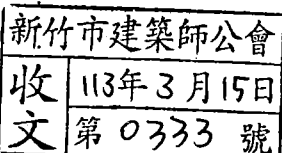 新竹市建築師公會
收文
113年3月15日
第0333號